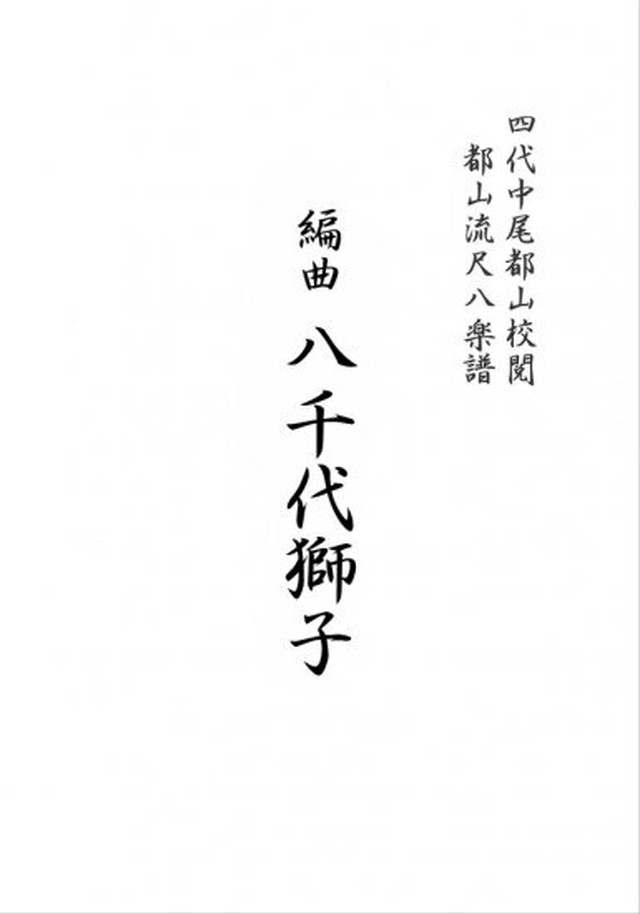 四代中尾都山校閲
都山流尺八楽譜
編曲 八千代獅子